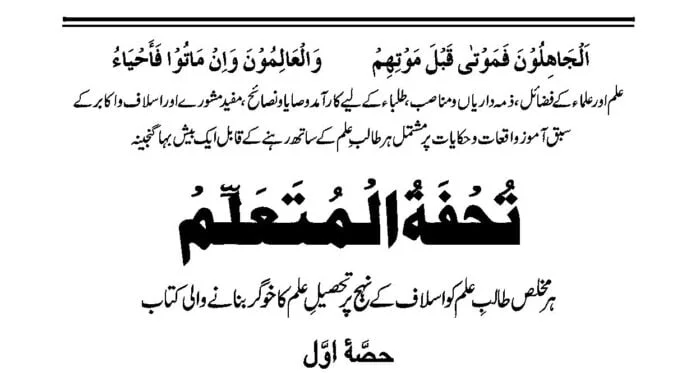 اَلْجَاهِلُوْنَ فَمَوْتٰی قَبْلَ مَوْتِهِمْ وَالْعَالِمُوْنَ وَاِنْ مَاتُوْا فَأَحْيَاءُ
علم اور علماء کے فضائل، ذمہ داریاں و مناصب، طلباء کے لیے کارآمد وصایا و نصائح، مفید مشورے اور اسلاف و اکابر کے
سبق آموز واقعات و حکایات پر مشتمل ہر طالبِ علم کے ساتھ رہنے کے قابل ایک بیش بہا گنجینہ
تُحْفَةُ الْمُتَعَلِّمُ
ہر مخلص طالبِ علم کو اسلاف کے نہج پر تحصیلِ علم کا خوگر بنانے والی کتاب
حصّۂ اوّل